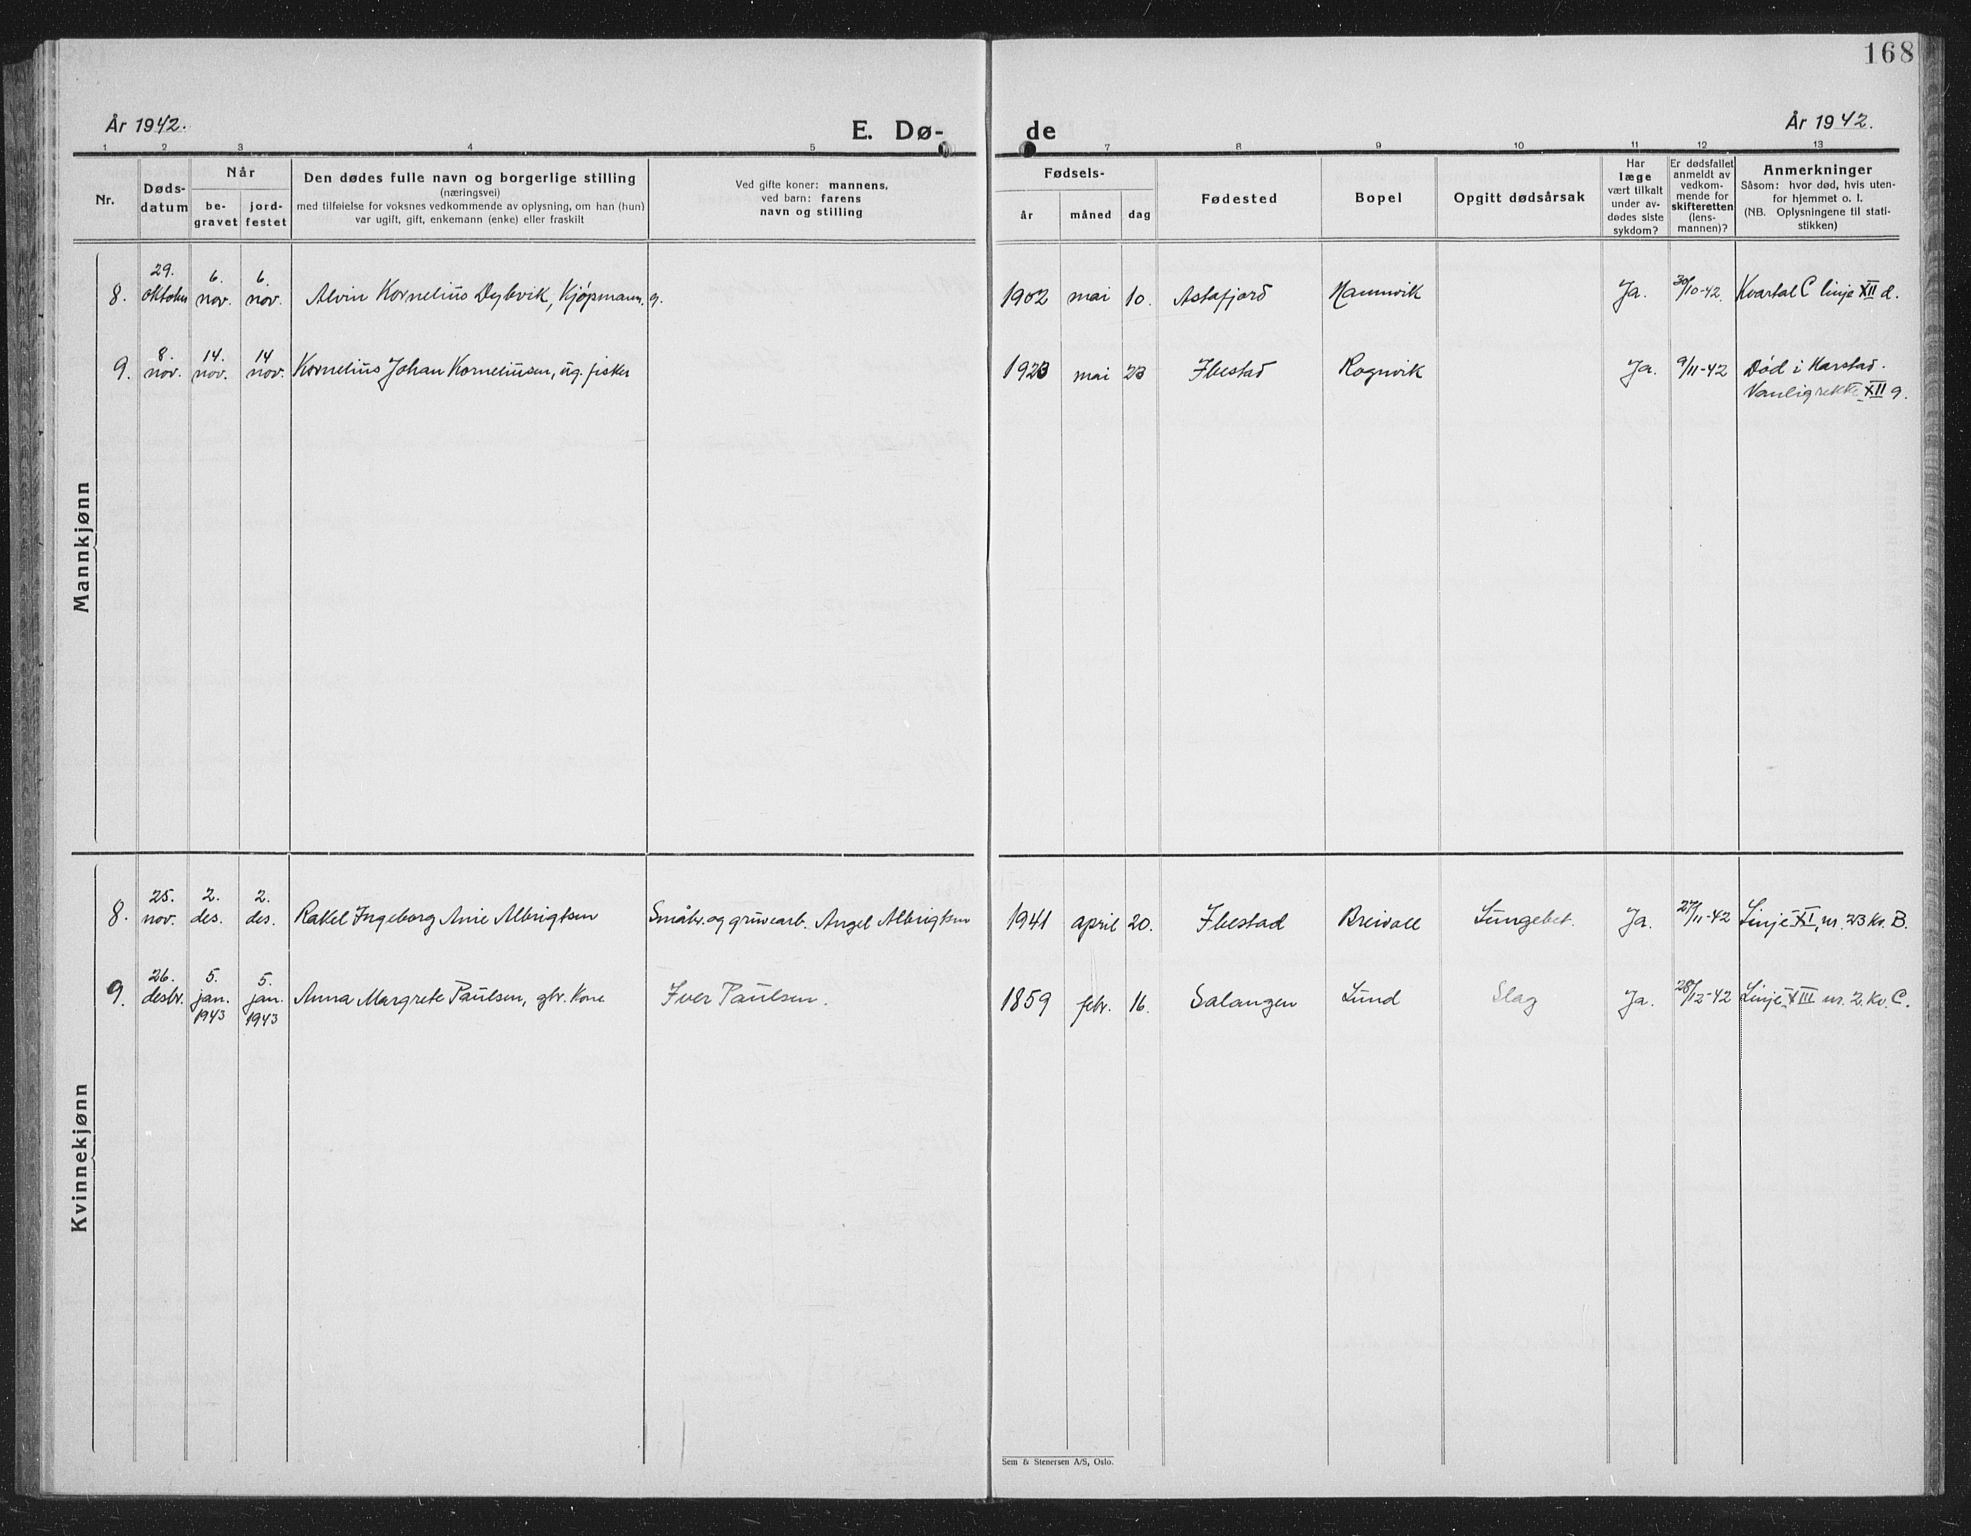 168
År 1942.
E. Dø-
de
År 1942.
1 2 3 4 5 7 8 9 10 11 12 13
Nr.
Døds-
datum
Når
be-
gravet
jord-
festet
Den dødes fulle navn og borgerlige stilling
(næringsvei)
med tilføielse for voksnes vedkommende av oplysning, om han (hun)
var ugift, gift, enkemann (enke) eller fraskilt
Ved gifte koner: mannens,
ved barn: farens
navn og stilling
Fødsels-
år måned dag
Fødested
Bopel
Opgitt dødsårsak
Har
læge
vært tilkalt
under av-
dødes siste
sykdom?
Er dødsfallet
anmeldt av
vedkom-
mende for
skifteretten
(lens-
mannen)?
Anmerkninger
Såsom: hvor død, hvis uten-
for hjemmet o. l.
(NB. Oplysningene til stati-
stikken)
Mannkjønn
8. 29. oktober 6. nov. 6. nov. Alvin Kornelius Dybvik, Kjøpmann, g. 1902 mai 10. Astafjord Hamnvik Ja. 30/10-42 Kvartal C linje XII d.
9. 8. nov. 14. nov. 14 nov. Kornelius Johan Korneliusen, ug. fisker 1923 mai 23 Ibestad Rognvik Ja. 9/11-42 Død i Harstad.
Vanlig rekke XII g.
Kvinnekjønn
8. 25. nov. 2. des. 2. des. Rakel Ingeborg Anie Albrigtsen Småbr. og gruvearb. Angel Albrigtsen 1941 april 20. Ibestad Breivoll Lungebet. Ja. 27/11-42 Linje XI, nr. 23 Kv. B.
9. 26. desbr. 5. jan. 1943 5. jan. 1943 Anna Margrete Paulsen, gbr. kone Iver Paulsen. 1859 febr. 16. Salangen Lund Slag Ja. 28/12-42 Linje XIII nr. 2. Kv. C.
Sem & Stenersen A/S, Oslo.